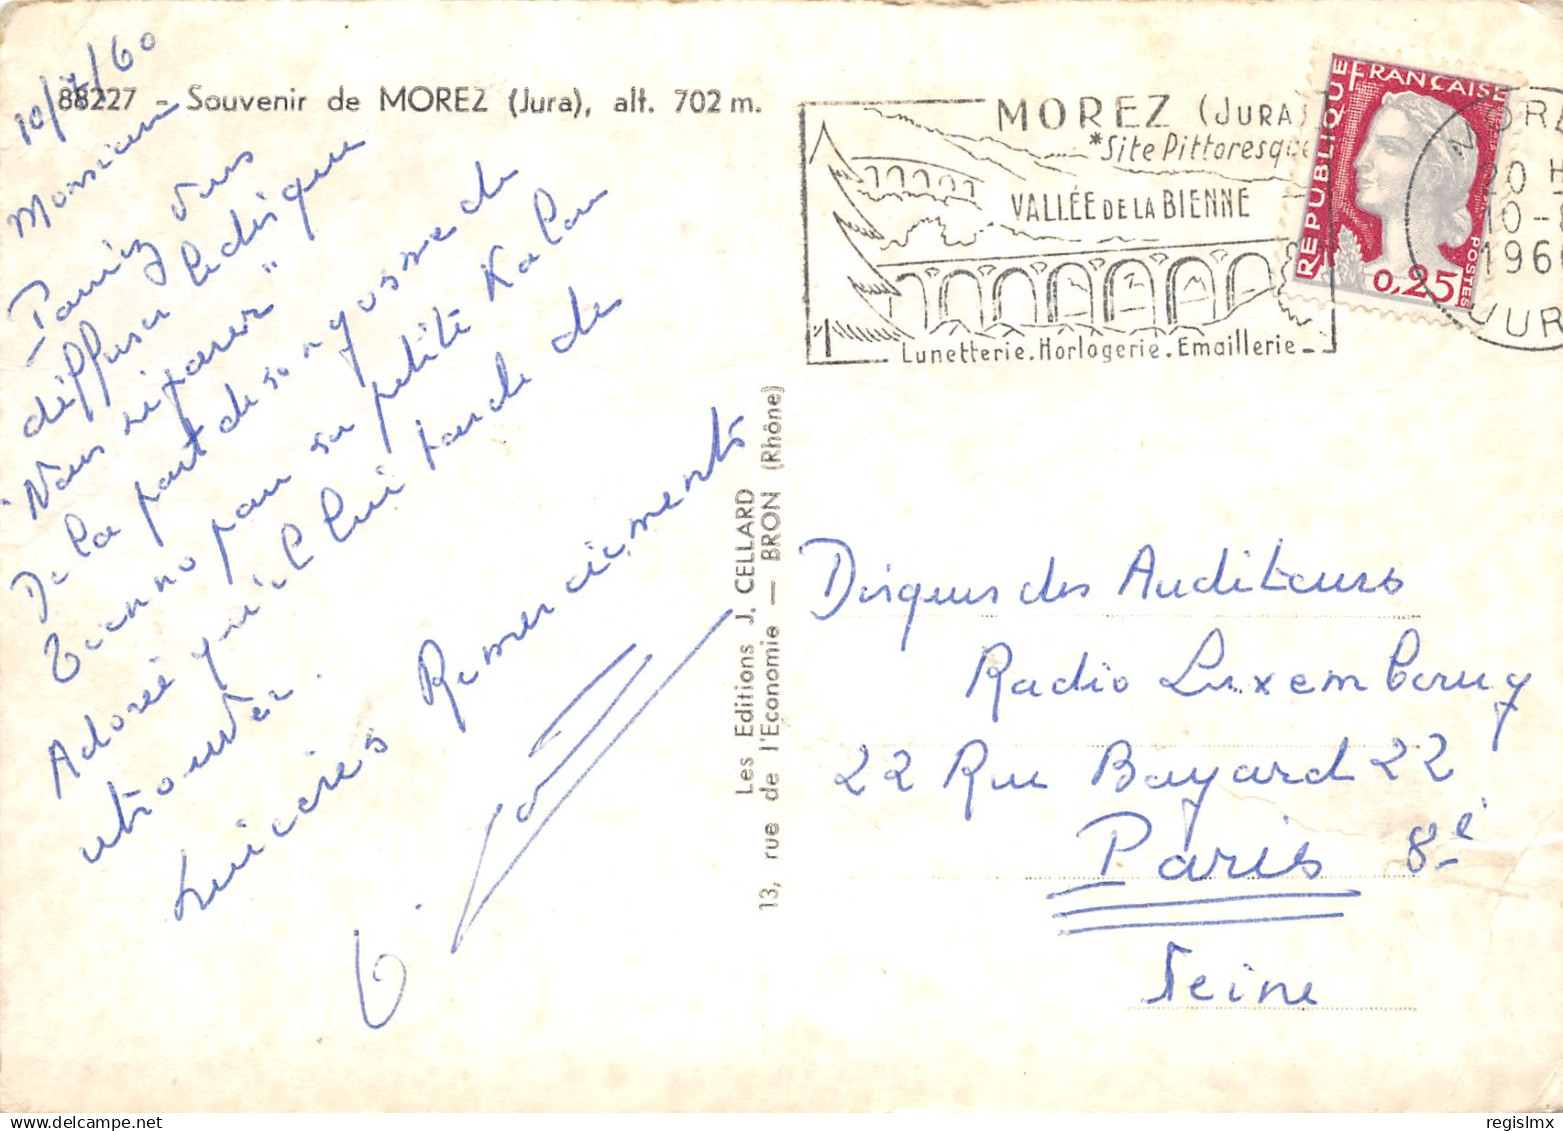 88227 - Souvenir de MOREZ (Jura), alt. 702 m.
10/7/60
Monsieur
Pourriez vous
diffuser le disque
"Nous séparer"
De la part de son gosse de
pour sa petite
Adorée qu'il lui tarde de
retrouver.
Sincères Remerciements
Les Editions J. CELLARD
13, rue de l'Economie — BRON (Rhône)
MOREZ (JURA)
*Site Pittoresque
VALLÉE DE LA BIENNE
Lunetterie. Horlogerie. Emaillerie
RÉPUBLIQUE FRANÇAISE
0,25
POSTES
MORE
20 H
10-
196
JUR
Disques des Auditeurs
Radio Luxembourg
22 Rue Bayard 22
Paris 8e
Seine
regislmx